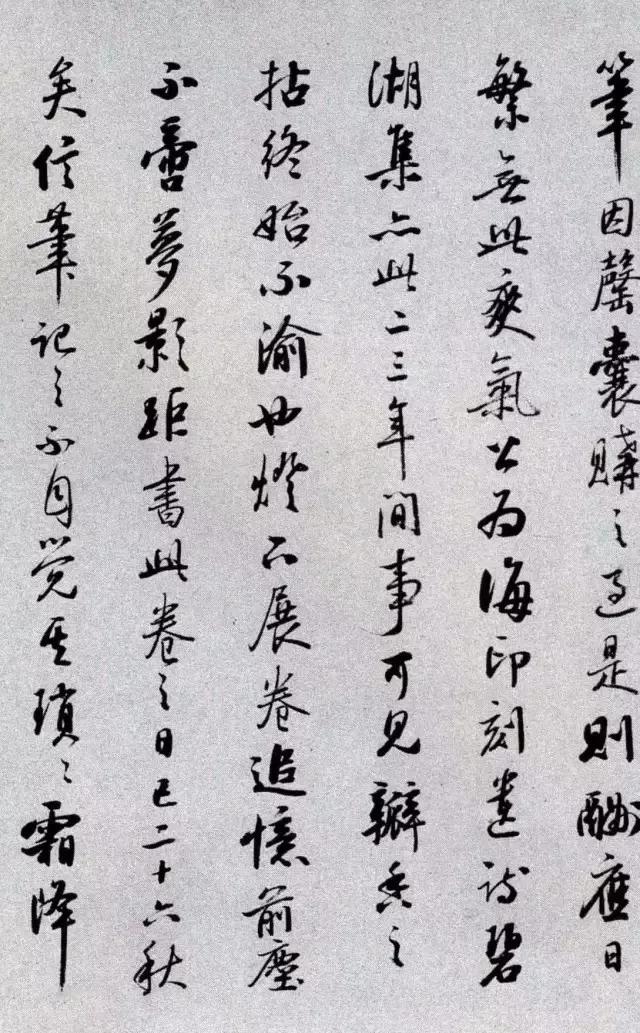 筆因罄囊購之過是則酬應日
繁無此爽氣公為海印刻遺詩碧
湖集亦此二三年間事可見瓣香之
拈終始不渝也燈下展卷追憶前塵
不啻夢影距書此卷之日已二十六秋
矣信筆記之不自覺其瑣〻霜降